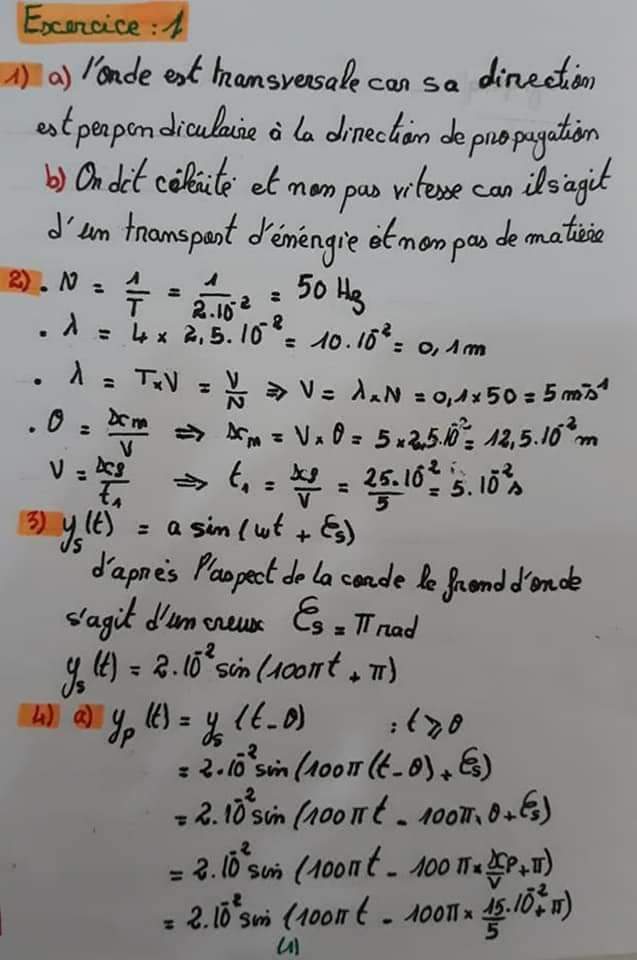 Excercice : 1
1) a) l'onde est transversale car sa direction
est perpendiculaire à la direction de propagation
b) On dit célérité et non pas vitesse car il s'agit
d'un transport d'énérgie et non pas de matière
2) . N = 1/T = 1/2.10⁻² = 50 Hz
. λ = 4 x 2,5.10⁻² = 10.10⁻² = 0,1m
. λ = T x V = V/N => V = λ x N = 0,1 x 50 = 5 ms⁻¹
. θ = xₘ/V => xₘ = V x θ = 5 x 2,5.10⁻² = 12,5.10⁻² m
V = xf/t₁ => t₁ = xf/V = 25.10⁻²/5 = 5.10⁻² s
3) yₛ(t) = a sin(ωt + φₛ)
d'après l'aspect de la corde le frond d'onde
s'agit d'un creux φₛ = π rad
yₛ(t) = 2.10⁻² sin(100πt + π)
4) a) yₚ(t) = yₛ(t - θ) : t ⩾ θ
= 2.10⁻² sin(100π(t - θ) + φₛ)
= 2.10⁻² sin(100πt - 100π.θ + φₛ)
= 2.10⁻² sin(100πt - 100π x xp/V + π)
= 2.10⁻² sin(100πt - 100π x 15/5 .10⁻² + π)
(1)